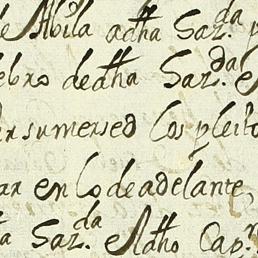 de Abila adha Saz.da
lebro de dha Saz.da
sumersed los pleito
ar en lo de adelante
Saz.da edho Cap.n